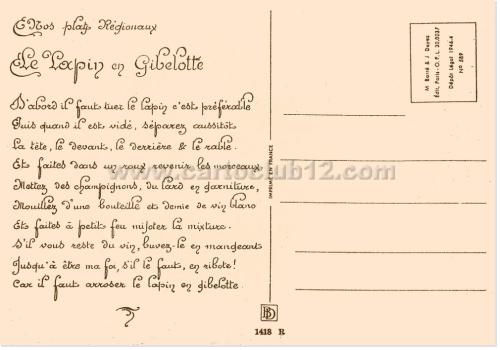 Nos plats Régionaux
Le Lapin en Gibelotte
D'abord il faut tuer le lapin c'est préférable
Puis quand il est vidé, séparez aussitôt
La tête, le devant, le derrière & le rable.
Et faites dans un roux revenir les morceaux,
Mettez des champignons, du lard en garniture,
Mouillez d'une bouteille et demie de vin blanc
Et faites à petit feu mijoter la mixture.
S'il vous reste du vin, buvez-le en mangeant
Jusqu'à être ma foi, s'il le faut, en ribote!
Car il faut arroser le lapin en gibelotte.
www.cartoclub12.com
IMPRIMÉ EN FRANCE
M. Barré & J. Dayez
Édit, Paris-O.P.L. 30.0027
Dépôt Légal 1946-4
No 889
BD
1418 R